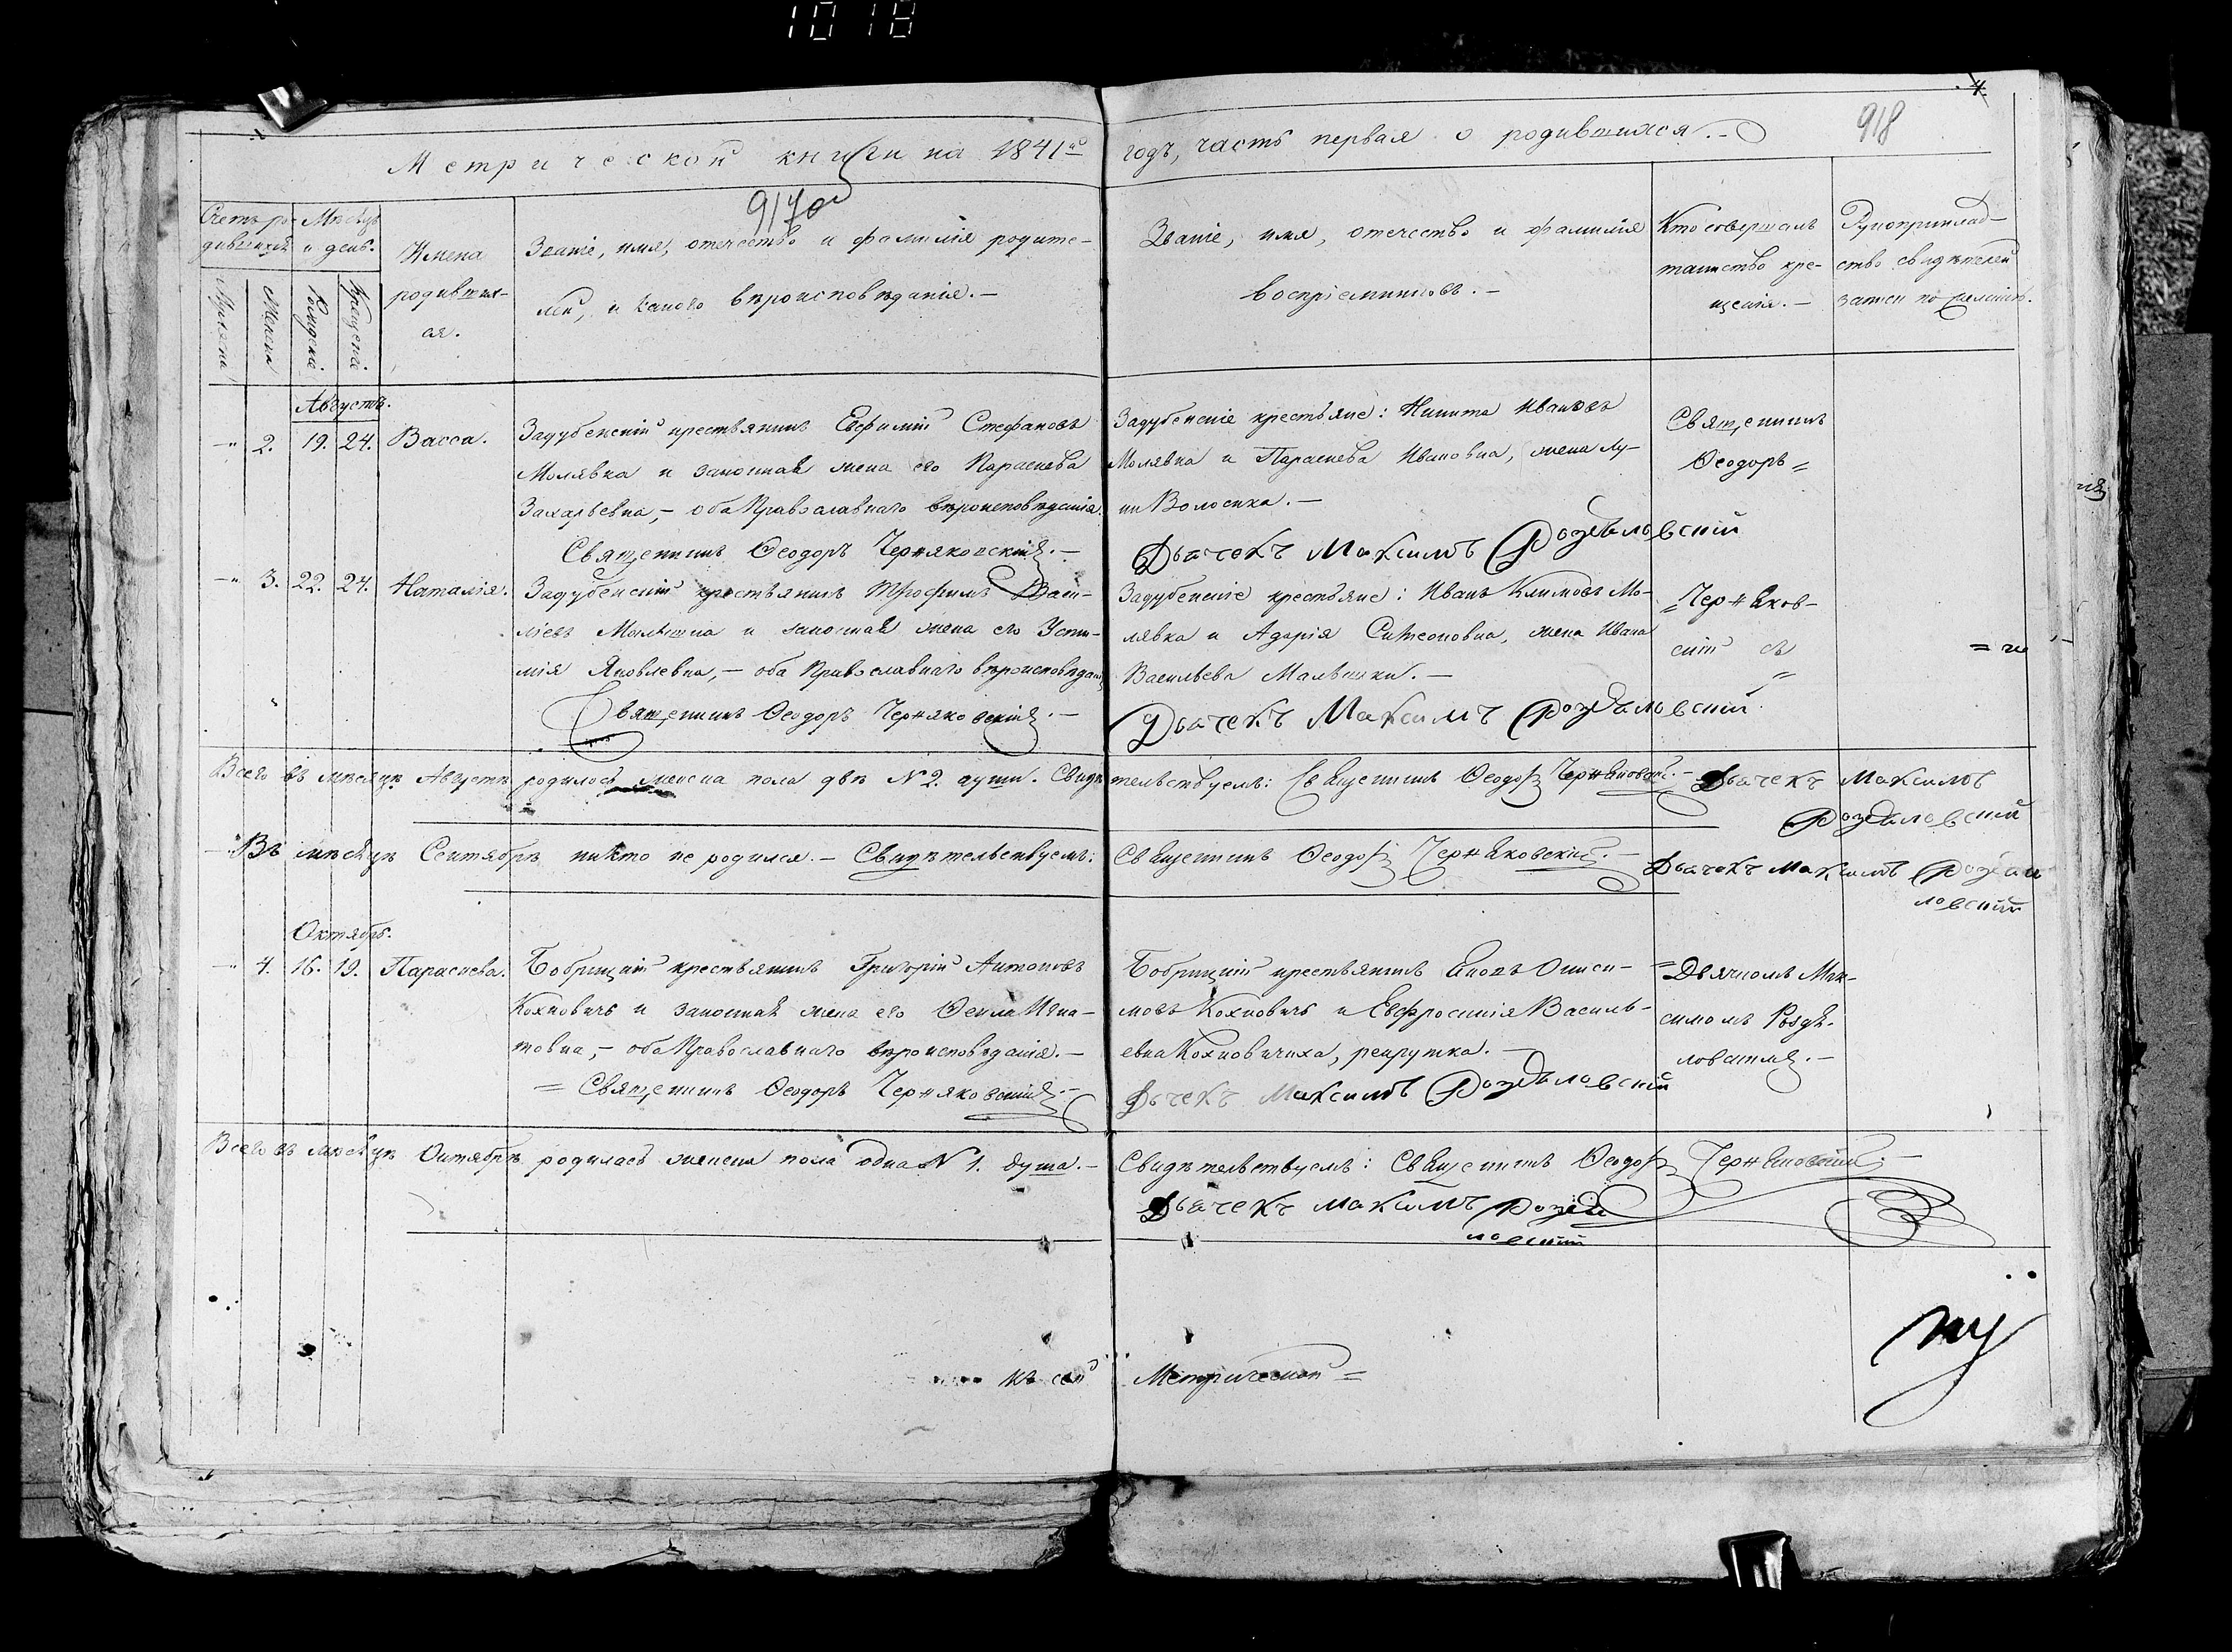 1018
Метрической книги на 1841й
годъ, часть первая о родившихся.
918
917об
Счетъ ро-
дившихся
Мѣсяцъ
и день.
Мужска
Женска
Рожденія
Крещенія
Имена
родивших-
ся.
Званіе, имя, отечество и фамилія родите-
лей, и какого вѣроисповѣданія.
Званіе, имя, отечество и фамилія
воспріемниковъ.
Кто совершалъ
таинство кре-
щенія.
Рукоприклад-
ство свидѣтелей
записи по желанію.
Августъ.
2. 19. 24. Васса.
Задубенскій крестьянинъ Евфимій Стефановъ
Молявка и законная жена его Параскева
Захарьевна, - оба Православнаго вѣроисповѣданія.
Священникъ Ѳеодоръ Черняковскій.
Задубенскіе крестьяне: Никита Ивановъ
Молявка и Параскева Ивановна, жена Лу-
ки Волосика.
Дьячекъ Максимъ Роздяловскій
Священникъ
Ѳеодоръ =
3. 22. 24. Наталія.
Задубенскій крестьянинъ Трофимъ Васи-
ліевъ Малышка и законная жена его Усти-
нія Яковлевна, - оба Православнаго вѣроисповѣданія
Священникъ Ѳеодоръ Черняковскій.
Задубенскіе крестьяне: Иванъ Климовъ Мо-
лявка и Адарія Симеоновна, жена Ивана
Васильева Малышки.
Дьячекъ Максимъ Роздяловскій
= Черняков-
скій съ
=
Всего въ мѣсяцѣ Августѣ родилось женска пола двѣ № 2. души. Свидѣтельствуемъ: Священникъ Ѳеодоръ Черняковскій. Дьячекъ Максимъ
Роздяловскій
Въ мѣсяцѣ Сентябрѣ никто не родился. - Свидѣтельствуемъ: Священникъ Ѳеодоръ Черняковскій. - Дьячекъ Максимъ Роздя
ловскій
Октябрь.
4. 16. 19. Параскева.
Бобрицкій крестьянинъ Григорій Антоновъ
Кохновичъ и законная жена его Ѳекла Игна-
товна, - оба Православнаго вѣроисповѣданія.
= Священникъ Ѳеодоръ Черняковскій.
Бобрицкій крестьянинъ Яковъ Ониси-
мовъ Кохновичъ и Евфросинія Василь-
евна Кохновичиха, рекрутка.
Дьчекъ Максимъ Роздяловскій
= Дьячкомъ Мак-
симомъ Роздя-
ловскимъ.
Всего въ мѣсяцѣ Октябрѣ родилась женска пола одна № 1. душа. - Свидѣтельствуемъ: Священникъ Ѳеодоръ Черняковскій.
Дьячекъ Максимъ Роздя
ловскій
Къ сей Метрической =